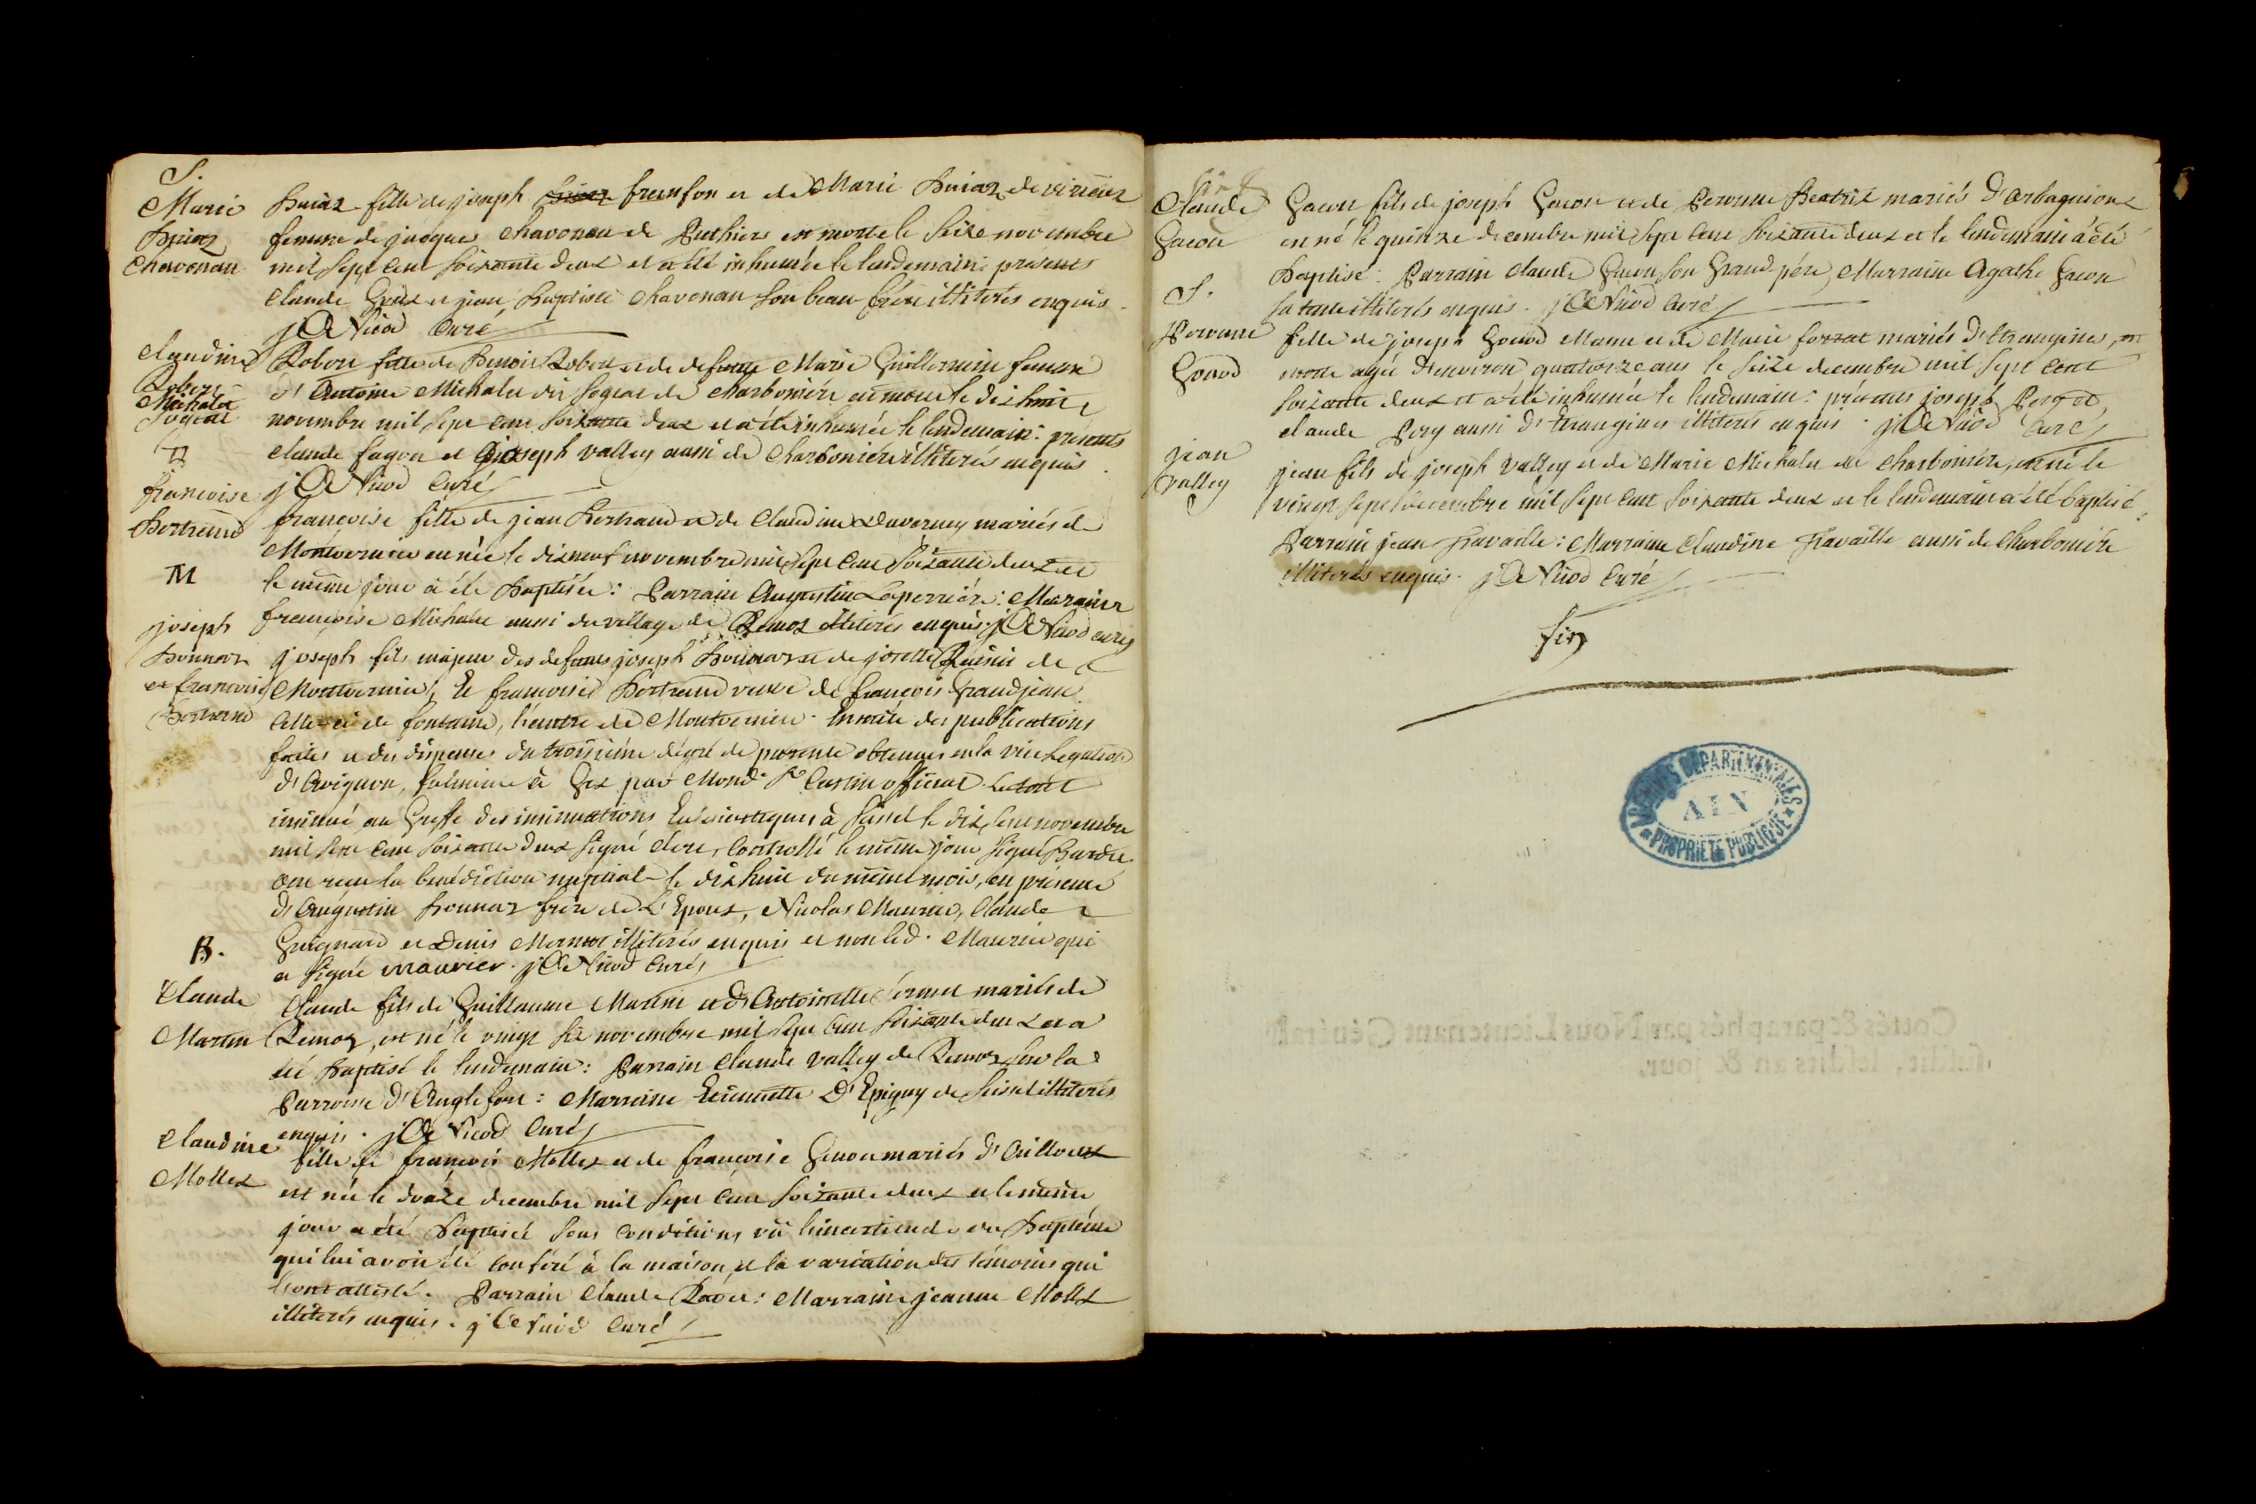 S.
Marie
fille de joseph françon et de Marie de virieux
femme de jacque Chavonau de Puthier est morte le seize novembre
Chavonau
mil sept cent soixante deux et a été inhumée le lendemain: presents
Claude et jean Baptiste Chavonau son beau frère illiterés enquis.
j De Nicod Curé
Claudine
Robert
Michalet
Robert fille de Benoit Robert et de defunte Marie Guillermin femme
d'Antoine Michalet dit de Charbonière est morte le dix huit
novembre mil sept cent soixante deux et a été inhumée le lendemain: présents
Claude fagon et joseph valley aussi de Charbonière illiterés enquis.
j De Nicod Curé
françoise
Bertrand
françoise fille de jean Bertrand et de Claudine Duverney mariés de
Montvernier est née le dix neuf novembre mil sept cent soixante deux et
le même jour a été Baptisée: Parrain Augustin Laperrière: Maraine
françoise Michalet aussi du village de Remoz illiterés enquis. j De Nicod curé
M
joseph
Bonnarz
et françoise
Bertrand
joseph fils majeur des defunts joseph et de josette de
Montvernier, Et françoise Bertrand veuve de françois Grandjean
Celle ci de fontaine, l'autre de Montvernier. Ensuite des publications
faites et des dispenses du troisième dégré de parenté obtenues en la vice Legation
d'Avignon, fulminée à Gex par Mond. Sr Castin official. Le tout
insinué au Greffe des insinuations Ecclesiastiques à Seissel le dix sept novembre
mil sept cent soixante deux signé Controllé le même jour signé
ont reçu la bénédiction nuptiale le dix huit du même mois, en présence
d'Augustin Bonnaz frère de L'Epoux, Nicolas Maurier, Claude
Guignard et Denis Mermet illiterés enquis et non led. Maurier qui
a signé maurier. j De Nicod Curé
B.
Claude
Martin
Claude fils de Guillaume Martin et d'Antoinette mariés de
Remoz, est né le vingt six novembre mil sept cent soixante deux et a
été Baptisé le lendemain: Parrain Claude valley de Remoz sur la
Parroisse d'Anglefort: Marraine Etiennette D'Epigny de Seissel illiterés
enquis. j De Nicod Curé
Claudine
Mollex
fille de françois Mollex et de françoise Genou mariés d'Eilloux
est née le douze decembre mil sept cent soixante deux et le même
jour a été Baptisée sous conditions vû l'incertitude du Baptême
qui lui avoit été conferé à la maison, et la variation des témoins qui
l'ont attesté. Parrain Claude: Marraine jeanne Mollex
illiterés enquis. j De Nicod Curé
Claude
Gacon
Gacon fils de joseph Gacon et de Peronne Beatrix mariés d'Orbagnioux
est né le quinze decembre mil sept cent soixante deux et le lendemain a été
Baptisé: Parrain Claude Gacon son Grand père, Marraine Agathe Gacon
sa tante illiterés enquis. j De Nicod Curé
S.
Peronne
Gonod
fille de joseph Gonod Manu et de Marie forrat mariés d'Etrangines, est
morte agée d'environ quatorze ans le seize decembre mil sept cent
soixante deux et a été inhumée le lendemain: présents joseph
claude Pery aussi d'Etrangines illiterés enquis. j De Nicod Curé
jean
valley
jean fils de joseph valley et de Marie Michalet de Charbonière, est né le
vingt sept decembre mil sept cent soixante deux et le lendemain a été baptisé:
Parrain jean Travaille: Marraine Claudine Travaille aussi de Charbonière
illiterés enquis. j De Nicod Curé
fin
ARCHIVES DÉPARTEMENTALES
AIN
PROPRIETE PUBLIQUE
Cottés & paraphés par Nous Lieutenant Général
susdit, lesdits an & jour.